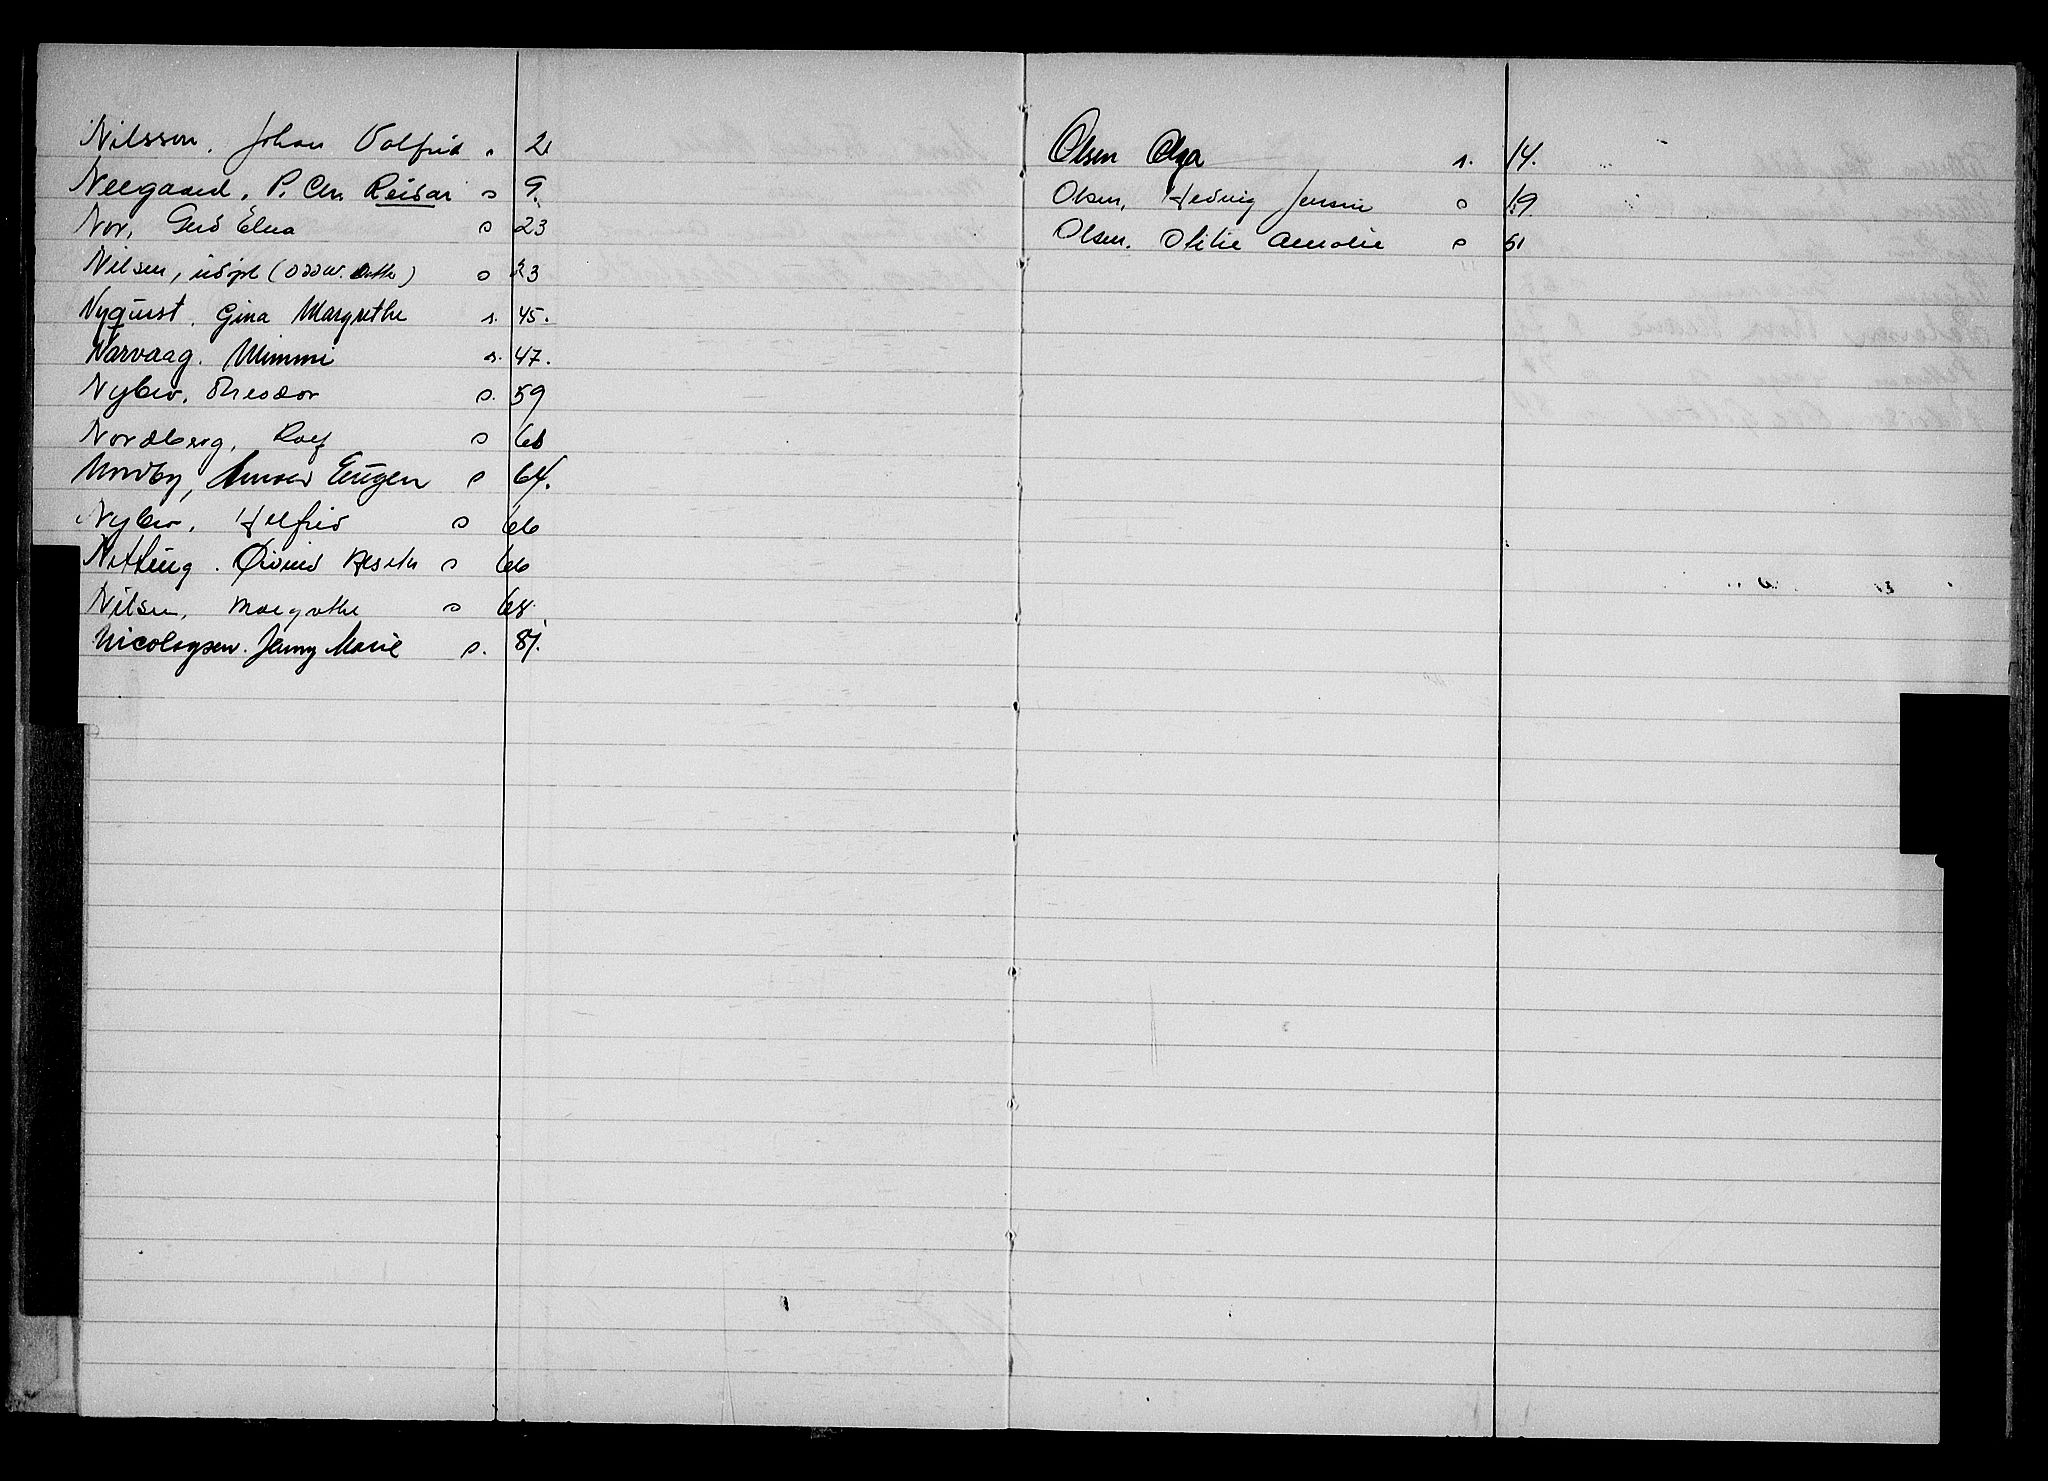 Nilsson, Johan Valfrid s 21
Neegaard, P. Chr. Reidar s 9.
Nor, Gerd Elna s 23
Nilsen, udøpt (Oddv. Dødf.) s 23
Nyquist, Gina Margrethe s. 45.
Narvaag. Mimmi s. 47.
Nybro, Theodor s. 59
Nordberg, Rolf s 61
Nordby, Arnold Eugen s 64.
Nybro, Helfrid s 66
Nitteng. Øivind s 66
Nilsen, Margrethe s 68.
Nicolaysen. Jenny Marie s. 81.
Olsen Olga s. 14.
Olsen, Hedvig Jensine s 19
Olsen. Otilie Amalie s 51